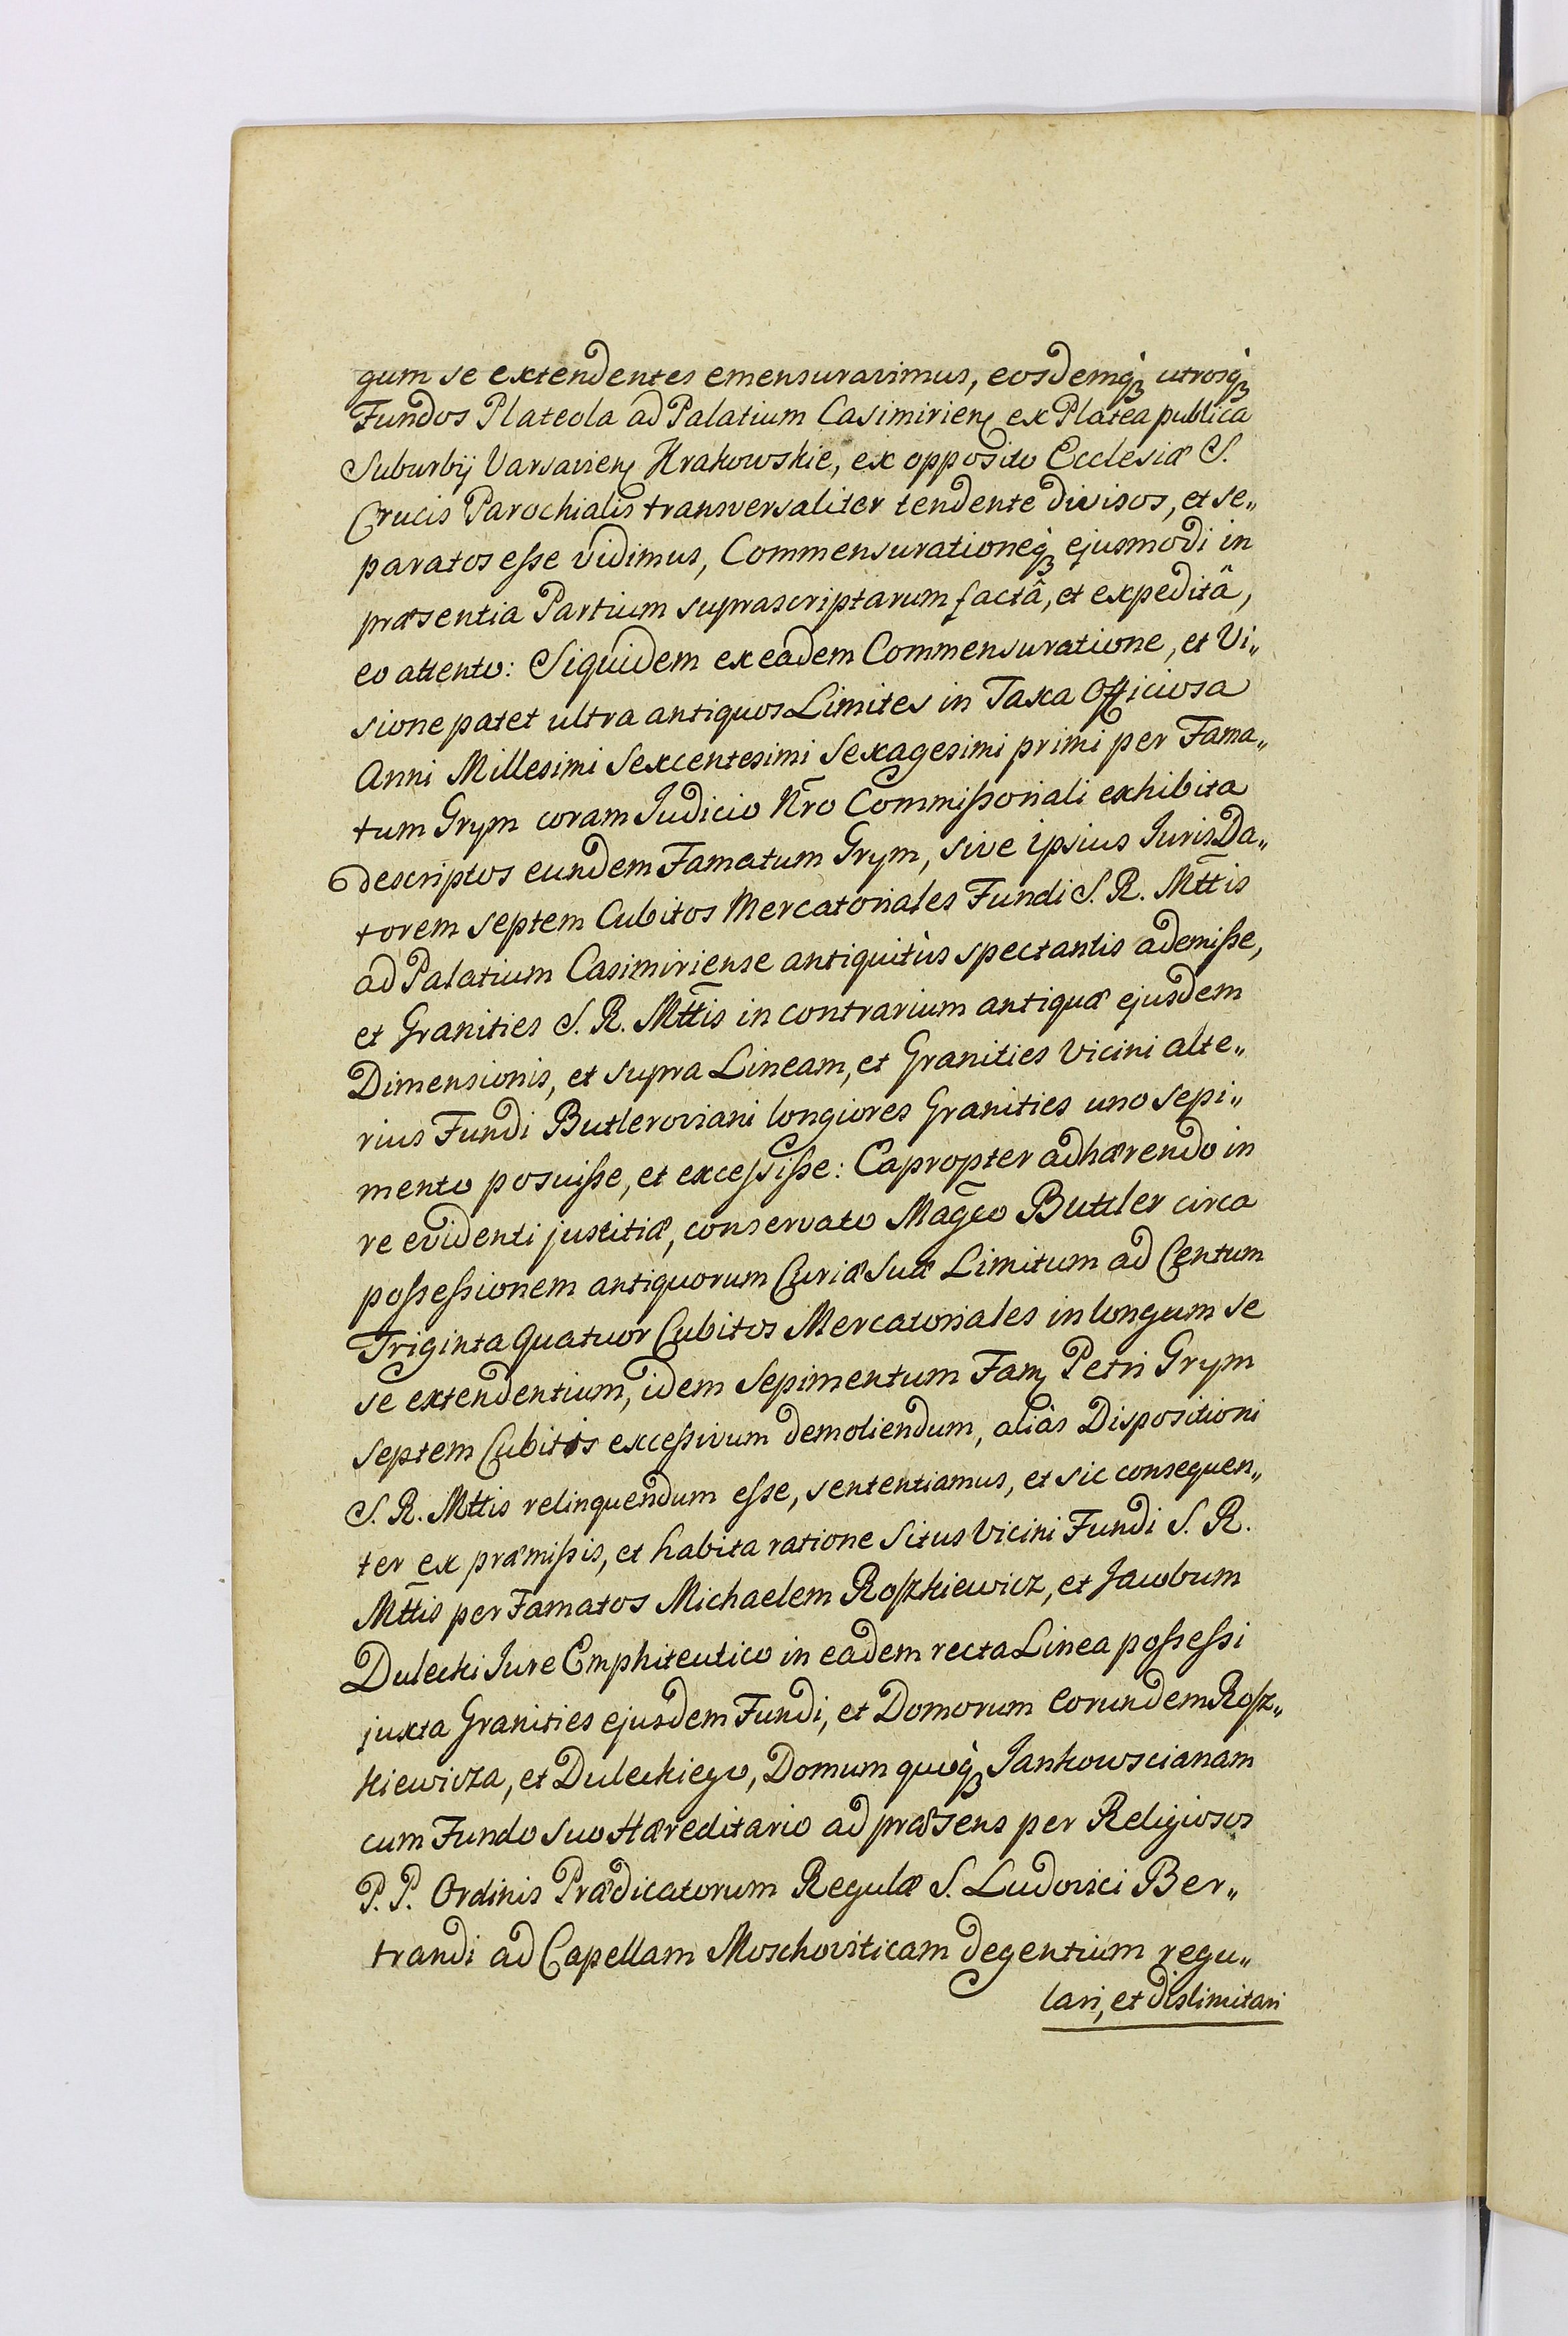 gum se extendentes emensuravimus, eosdemq́ꝫ utrosq́ꝫ
Fundos Plateola ad Palatium Casimirien̨ ex Platea publica
Suburbij Varsavien̨ Krakowskie, ex opposito Ecclesiæ S.
Crucis Parochialis transversaliter tendente divisos, et se„
paratos esse vidimus, Commensurationeq́ꝫ ejusmodi in
præsentia Partium suprascriptarum factâ, et expeditâ,
eo attento: Siquidem ex eadem Commensuratione, et Vi„
sione patet ultra antiquos Limites in Taxa Officiosa
Anni Millesimi Sexcentesimi Sexagesimi primi per Fama„
tum Grym coram Judicio Nr̄o Commissoriali exhibita
descriptos eundem Famatum Grym, sive ipsius Juris Da„
torem septem Cubitos Mercatoriales Fundi S. R. Mt̄tis
ad Palatium Casimiriense antiquitùs spectantis ademisse,
et Granities S. R. Mt̄tis in contrarium antiquæ ejusdem
Dimensionis, et supra Lineam, et Granities Vicini alte„
rius Fundi Butleroviani longiores Granities uno sepi„
mento posuisse, et excessisse: Eapropter adhærendo in
re evidenti justitiæ, conservato Mag̅co Buttler circa
possessionem antiquorum Curiæ Suæ Limitum ad Centum
Triginta Quatuor Cubitos Mercatoriales in longum se
se extendentium, idem Sepimentum Fam̨ Petri Grym
septem Cubitis excessivum demoliendum, aliàs Dispositioni
S. R. Mttis relinquendum esse, sententiamus, et sic consequen„
ter ex præmissis, et habita ratione Situs Vicini Fundi S. R.
Mt̄tis per Famatos Michaelem Roszkiewicz, et Jacobum
Dulecki Jure Emphiteutico in eadem recta Linea possessi
juxta Granities ejusdem Fundi, et Domorum Eorundem Rosz„
kiewicza, et Duleckiego, Domum quoq́ꝫ Jankowscianam
cum Fundo suo Hæreditario ad præsens per Religiosos
P. P. Ordinis Prædicatorum Regulæ S. Ludovici Ber„
trandi ad Capellam Moschoviticam degentium regu„
lari, et dislimitari